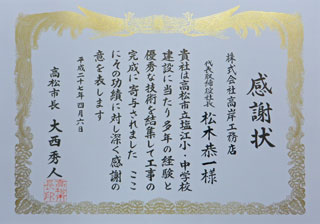 感謝状
株式会社高岸工務店
代表取締役社長 松木恭一様
貴社は高松市立塩江小・中学校
建設に当たり多年の経験と
優秀な技術を結集して工事の
完成に寄与されました ここ
にその功績に対し深く感謝の
意を表します
平成二十七年四月六日
高松市長 大西秀人